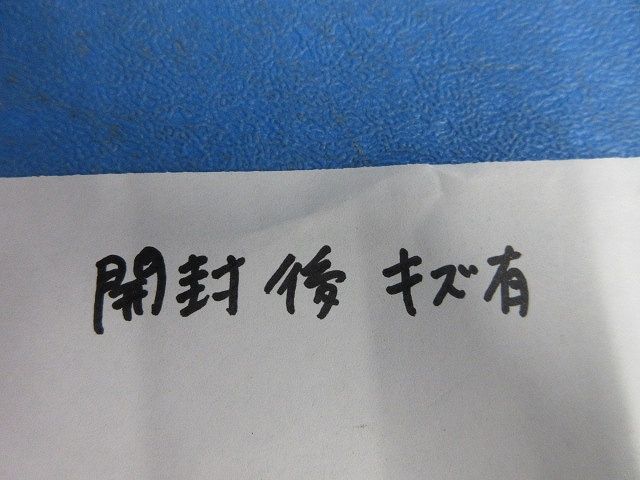 開封後 キズ有